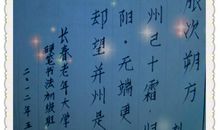 旅次朔方
州已十霜.归
阳.无端更
却望并州是
长春老年大学
硬笔书法初级班
二〇一二年